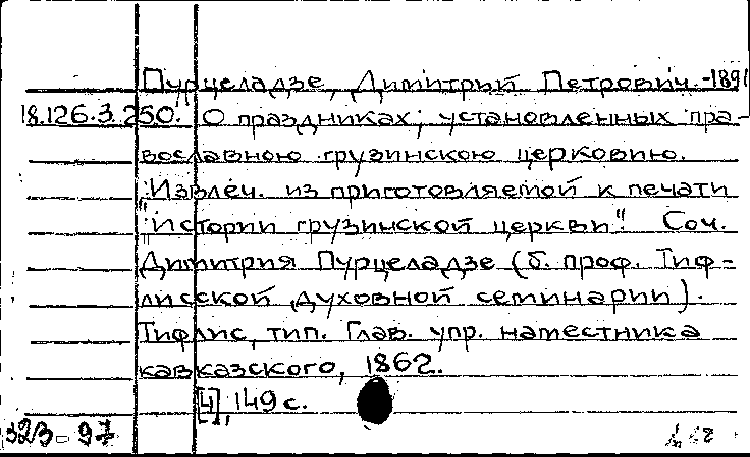 Пурцеладзе, Димитрий Петрович. -1891
18.126.3.250. О праздниках, установленных пра-
вославною грузинскою церковию.
Извлеч. из приготовляемой к печати
"Истории грузинской церкви". Соч.
Димитрия Пурцеладзе (б. проф. Тиф-
лисской духовной семинарии).
Тифлис, тип. Глав. упр. наместника
кавказского, 1862.
[4], 149 с.
323-97